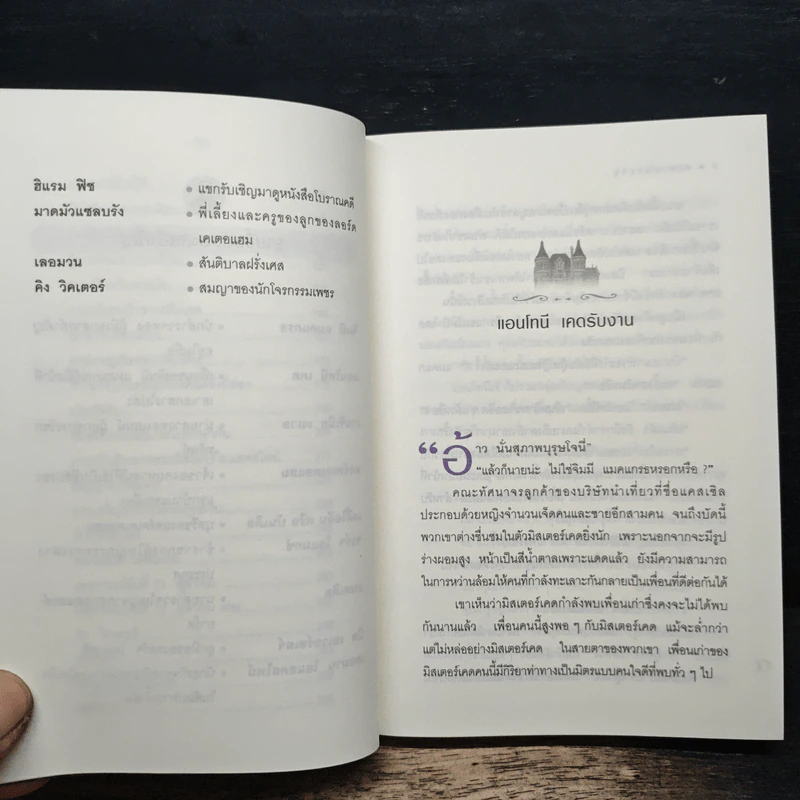 ฮิแรม ฟิช • แขกรับเชิญมาดูหนังสือโบราณคดี
มาดมัวแซลบรัง • พี่เลี้ยงและครูของลูกของลอร์ด
เคเตอแฮม
เลอมวน • สันติบาลฝรั่งเศส
คิง วิคเตอร์ • สมญาของนักโจรกรรมเพชร
แอนโทนี เคดรับงาน
“อ้าว นั่นสุภาพบุรุษโจนี่”
“แล้วก็นายน่ะ ไม่ใช่จิมมี แมคแกรธหรอกหรือ ?”
คณะทัศนาจรลูกค้าของบริษัทนำเที่ยวที่ชื่อแคสเซิล
ประกอบด้วยหญิงจำนวนเจ็ดคนและชายอีกสามคน จนถึงบัดนี้
พวกเขาต่างชื่นชมในตัวมิสเตอร์เคดยิ่งนัก เพราะนอกจากจะมีรูป
ร่างผอมสูง หน้าเป็นสีน้ำตาลเพราะแดดแล้ว ยังมีความสามารถ
ในการหว่านล้อมให้คนที่กำลังทะเลาะกันกลายเป็นเพื่อนที่ดีต่อกันได้
เขาเห็นว่ามิสเตอร์เคดกำลังพบเพื่อนเก่าซึ่งคงจะไม่ได้พบ
กันนานแล้ว เพื่อนคนนี้สูงพอ ๆ กับมิสเตอร์เคด แม้จะล่ำกว่า
แต่ไม่หล่ออย่างมิสเตอร์เคด ในสายตาของพวกเขา เพื่อนเก่าของ
มิสเตอร์เคดคนนี้มีกิริยาท่าทางเป็นมิตรแบบคนใจดีที่พบทั่ว ๆ ไป